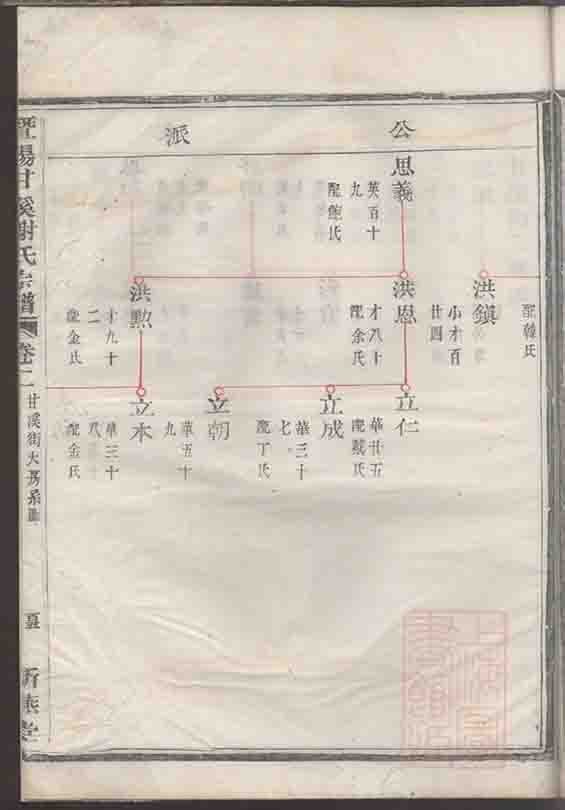 公派
配韓氏
洪鎮
小才百
廿四
思義
英百十
九
配鮑氏
洪恩
才八十
配余氏
洪勲
才九十
二
配金氏
立仁
華廿五
配戴氏
立成
華三十
七
配丁氏
立朝
華五十
九
立本
華三十
八
配金氏
暨陽甘溪謝氏宗譜
卷二
甘溪街大房系圖